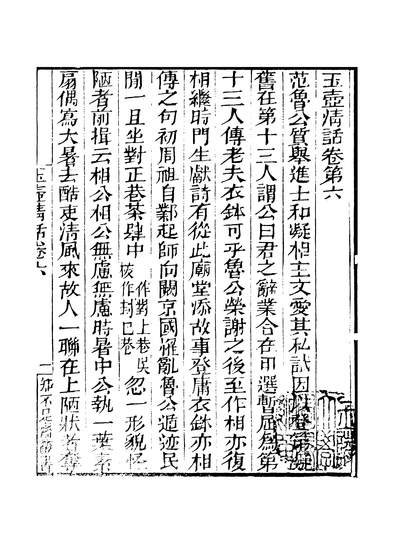 玉壺清話卷第六
范魯公質舉進士和凝相主文愛其私試因以登第凝
舊在第十三人謂公曰君之辭業合在甲選暫屈爲第
十三人傳老夫衣鉢可乎魯公榮謝之後至作相亦復
相繼時門生獻詩有從此廟堂添故事登庸衣鉢亦相
傳之句初周祖自鄴起師向闕京國惟亂魯公遁迹民
間一旦坐對正巷茶肆中
作對上巷吴
校作封巳巷
忽一形貌怪
陋者前揖云相公相公無慮無慮時暑中公執一葉素
扇偶寫大暑去酷吏清風來故人一聯在上陋狀者奪
玉壺清話卷六
一
知不足齋叢書